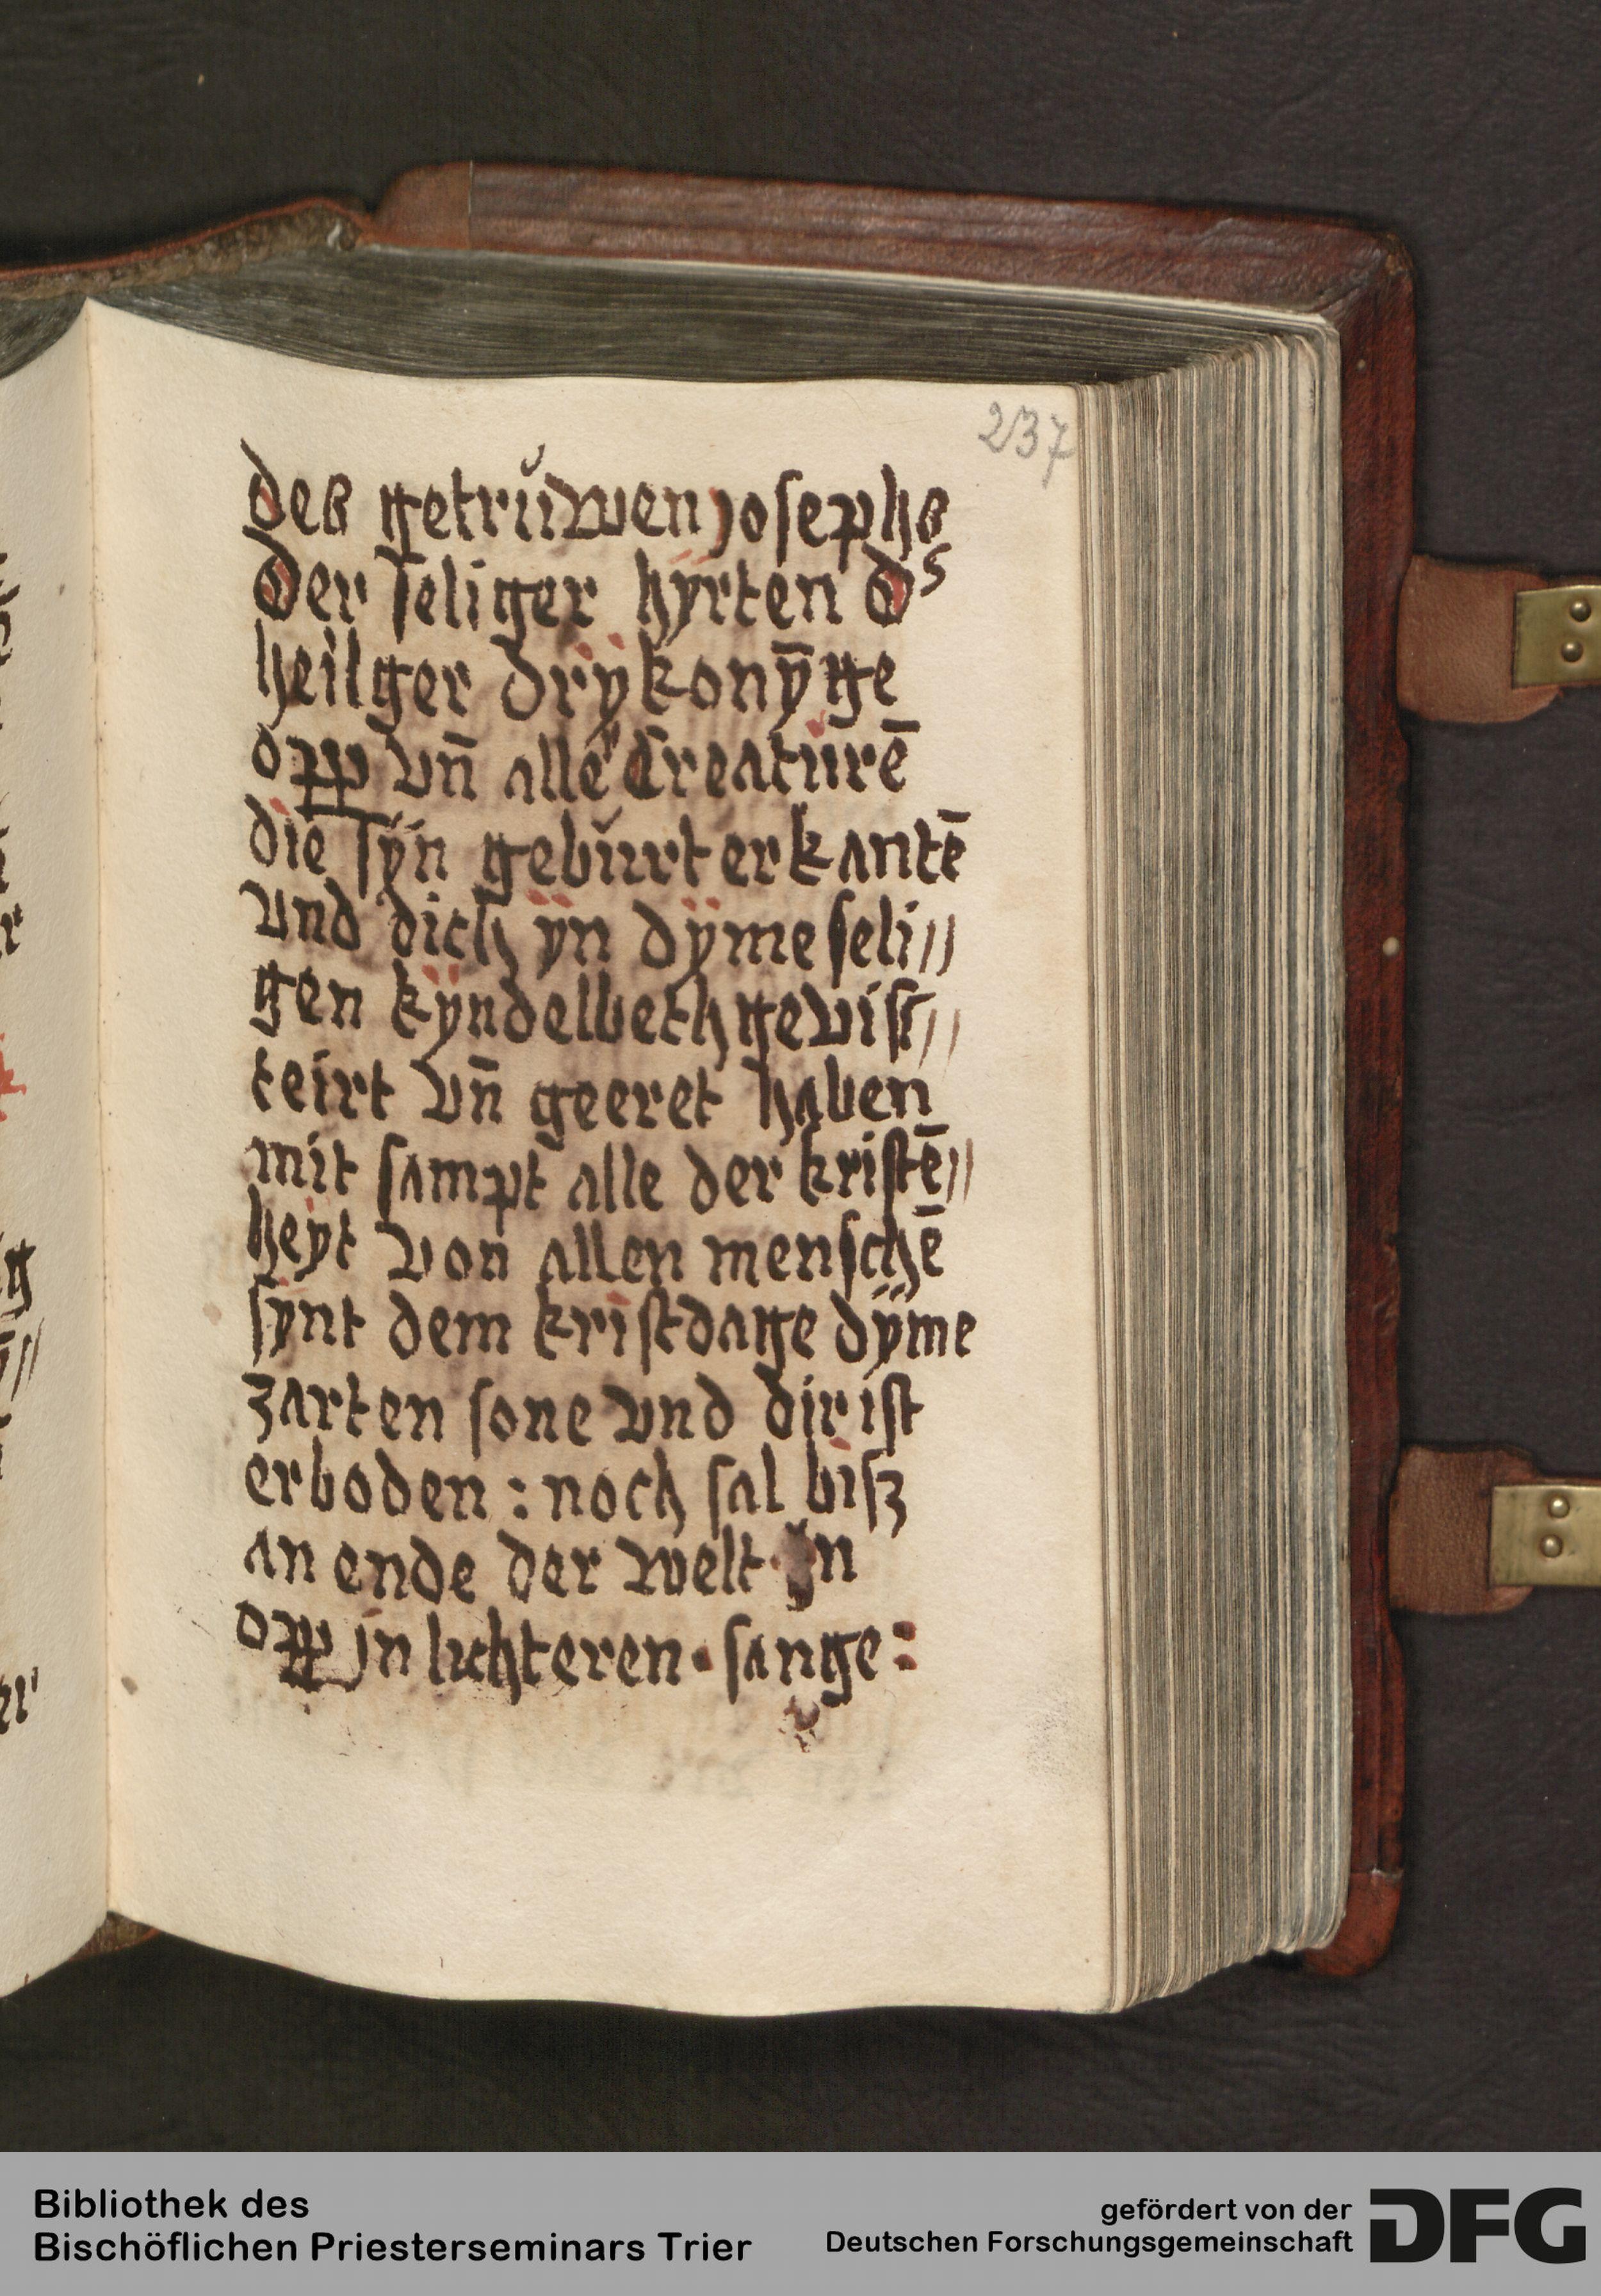 237
des getrüwen josephs
Der seliger hyrten d^s
heilger dry konȳge
opp vn̄ alle Creatürē
die syn gebürt erkantē
Vnd dich ÿn dÿme seli//
gen kÿndelbeth gevist//
teirt vn̄ geeret haben
mit sampt alle der kristē//
heyt von allen menschē
synt dem kristdage dÿme
zarten sone vnd dir ist
erboden : noch sal bisz
an ende der welt · jn
opp jn luchteren · sange :
Bibliothek des
Bischöflichen Priesterseminars Trier
gefördert von der
Deutschen Forschungsgemeinschaft
DFG